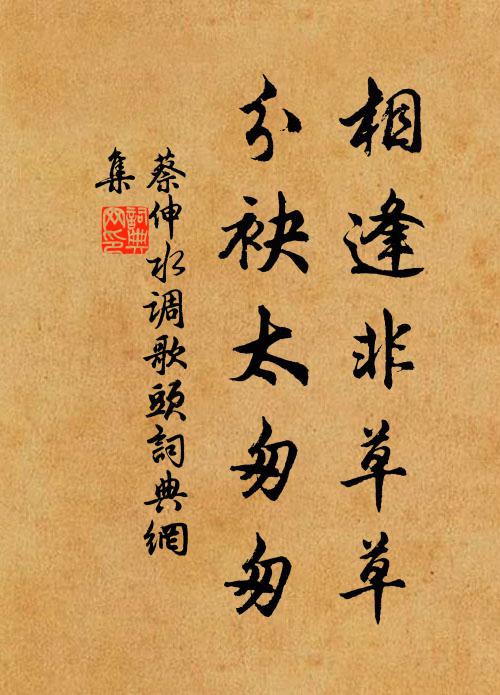 相逢非草草
分袂太匆匆
蔡伸水调歌頭詞典網
集
詞典网印